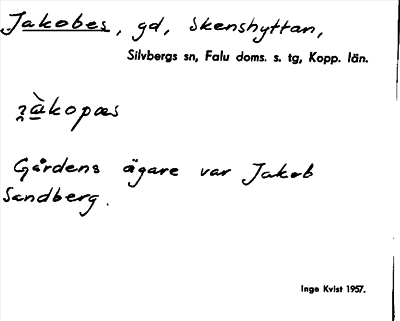 Jakobes, gd, Skenshyttan,
Silvbergs sn, Falu doms. s. tg, Kopp. län.
Gårdens ägare var Jakob
Sandberg.
Inge Kvist 1957.